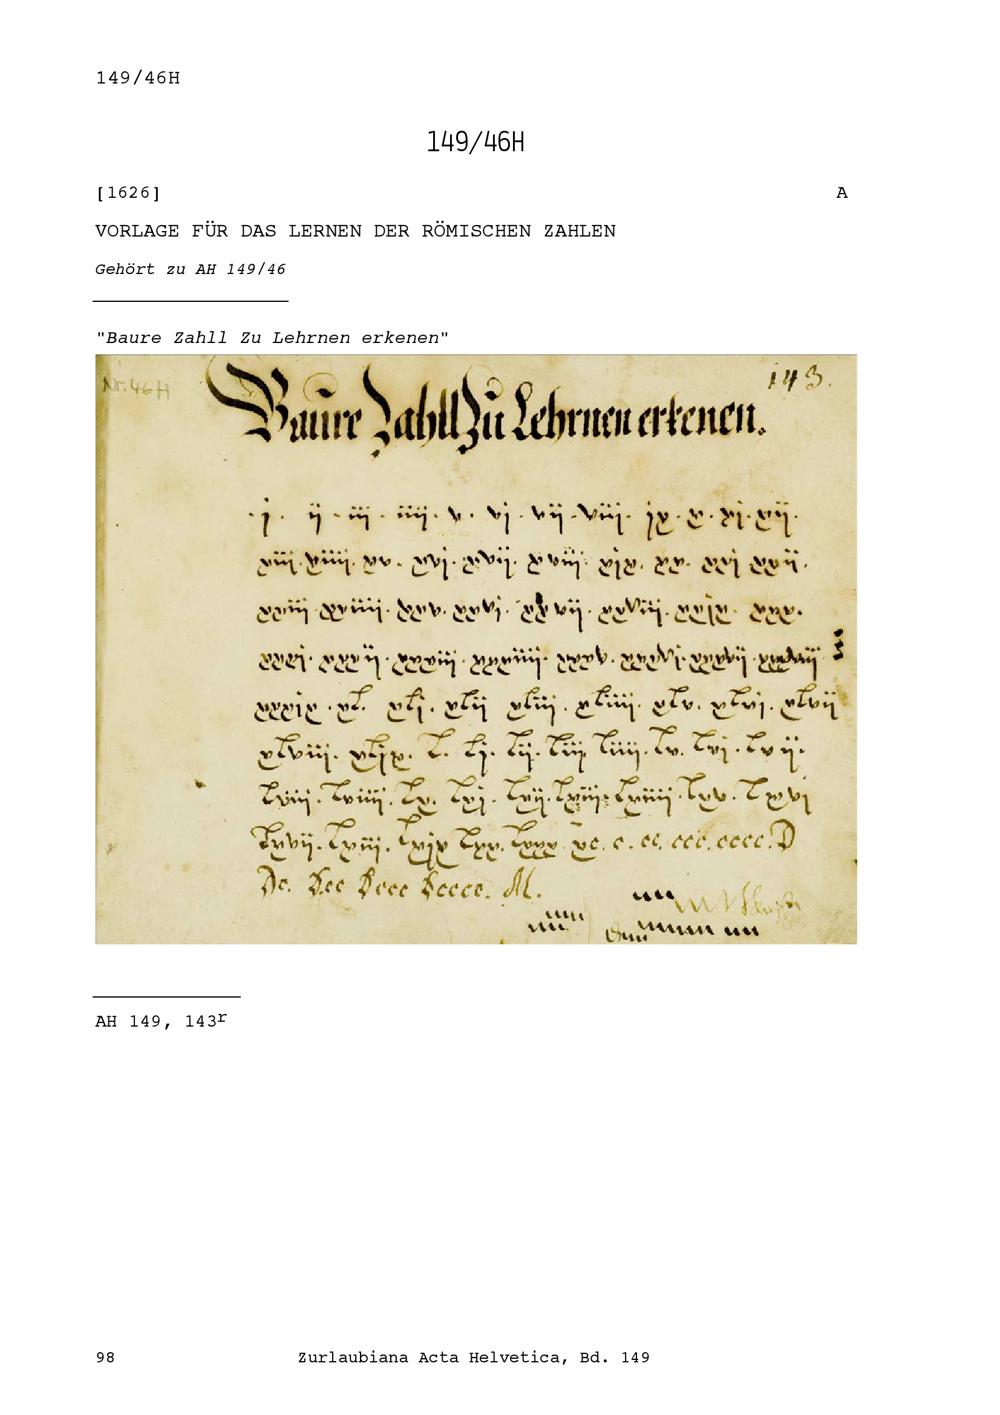 149/46H
149/46H
[1626] A
VORLAGE FÜR DAS LERNEN DER RÖMISCHEN ZAHLEN
Gehört zu AH 149/46
"Baure Zahll Zu Lehrnen erkenen"
Nr. 46H 143.
Baure Zahll Zu Lehrnen erkenen.
. j . ij . iij . iiij . v . vj . vij . viij . jx . x . xj . xij .
xiij . xiiij . xv . xvj . xvij . xviij . xjx . xx . xxj xxij .
xxiij xxiiij . xxv . xxvj . xxvij . xxviij . xxjx . xxx .
xxxj . xxxij . xxxiij . xxxiiij . xxxv . xxxvj . xxxvij . xxxviij
xxxjx . xl . xlj . xlij xliij . xliiij . xlv . xlvj . xlvij
xlviij . xljx . l . lj . lij . liij liiij . lv . lvj . lvij .
lviij . lviiij . lx . lxj . lxij . lxiij . lxiiij . lxv . lxvj
lxvij . lxviij . lxjx lxx . lxxx xc . c . cc . ccc . cccc . D
Dc . Dcc Dccc Dcccc . M .
AH 149, 143r
98 Zurlaubiana Acta Helvetica, Bd. 149